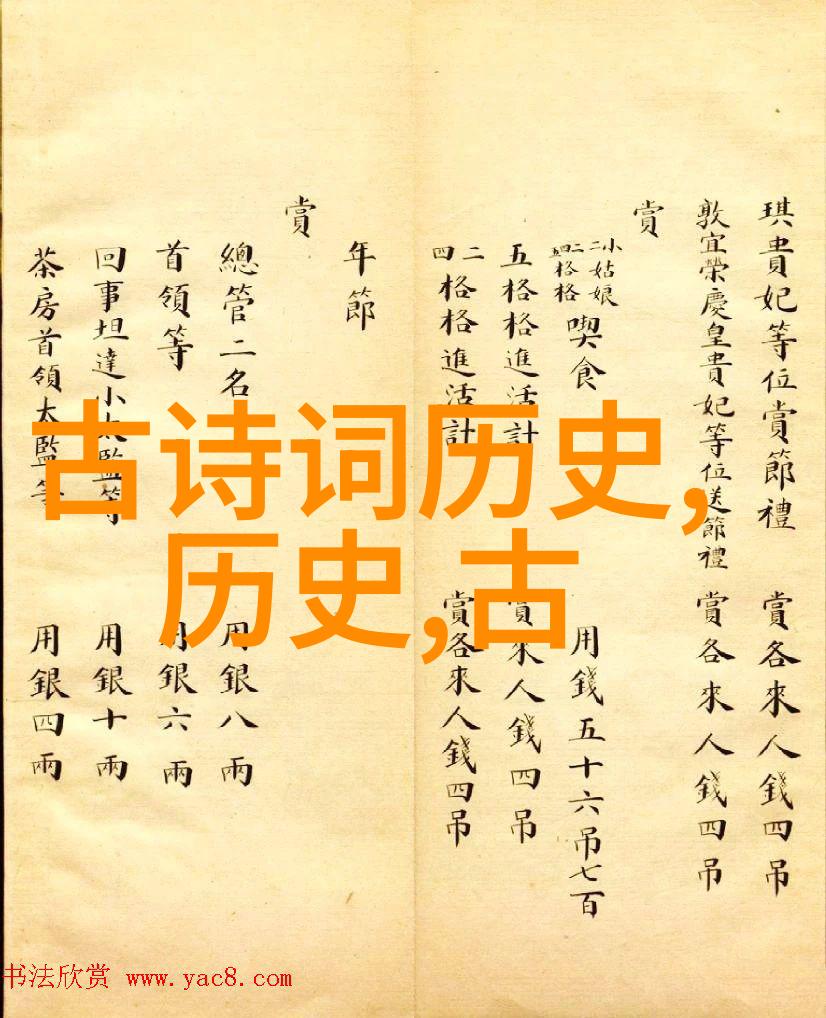 琪貴妃等位賞節禮 賞各來人錢四吊
敦宜榮慶皇貴妃等位送節禮 賞各來人錢四吊
賞
小姑娘
二二格格
五四格格
喫食 用錢五十六吊七百
五格格進活計 賞來人錢四吊
二四格格進活計 賞各來人錢四吊
年節
賞
總管二名 用銀八兩
首領等 用銀六兩
回事坦達小太監等 用銀十兩
茶房首領太監等 用銀四兩
古诗词历史,
历史,古
书法欣赏 www.yac8.com